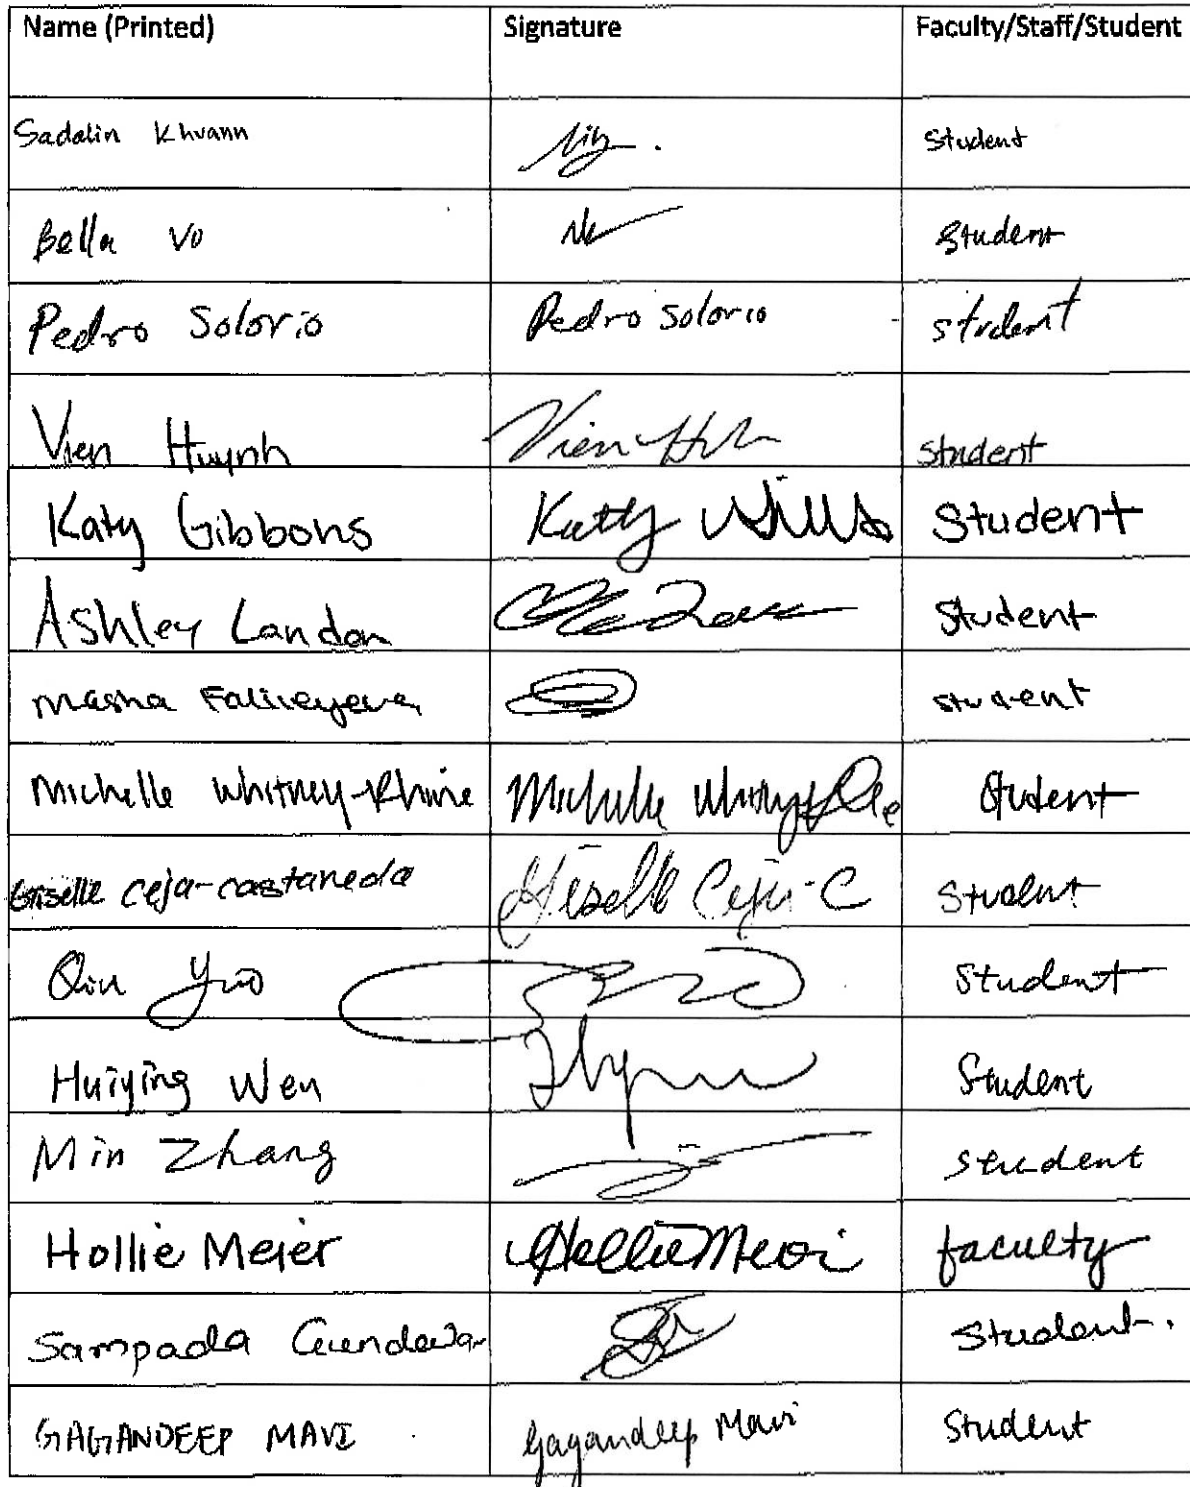 Name (Printed) Signature Faculty/Staff/Student
Sadalin Khvann student
Bella Vo student
Pedro Solorio Pedro Solorio student
Vien Huynh Vien student
Katy Gibbons Katy student
Ashley Landon student
Masha student
Michelle Whitney-Rhine Michelle Student
Giselle ceja-castaneda Giselle Ceja-C Student
Qin Student
Huiying Wen Student
Min Zhang student
Hollie Meier Hollie Meier faculty
Sampada Student.
GAGANDEEP MAVI Gagandeep Mavi Student